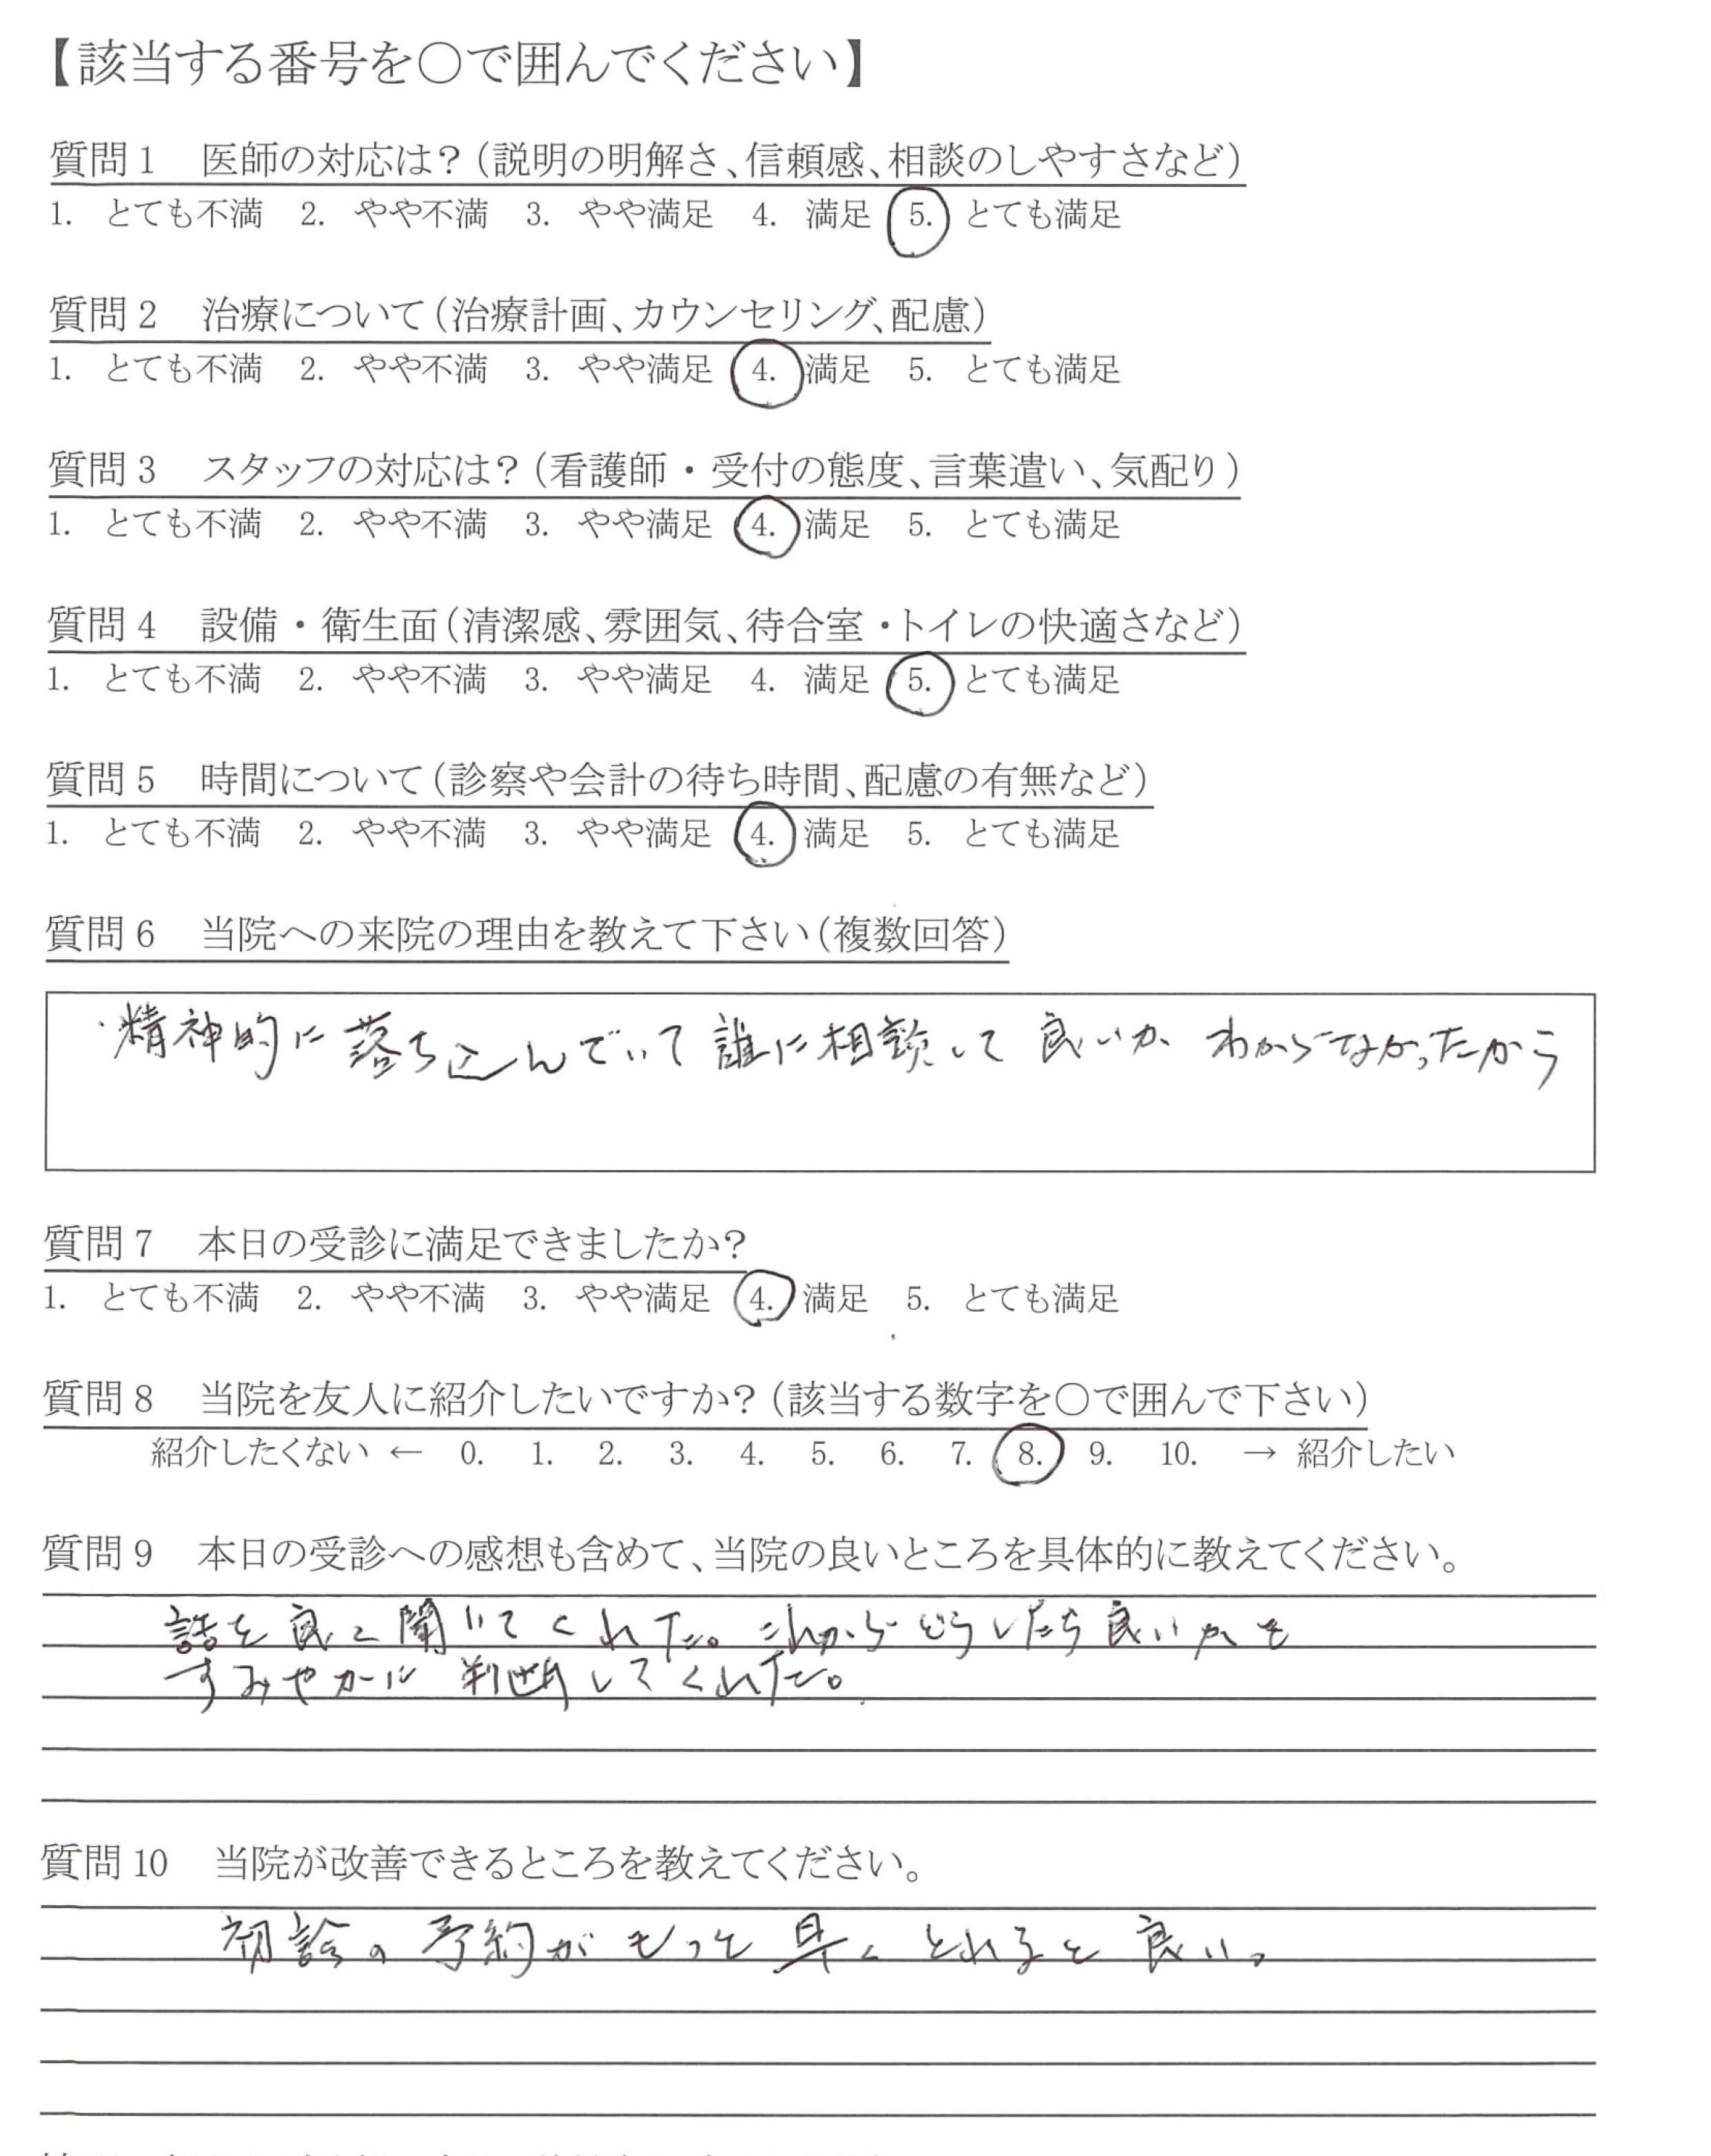 【該当する番号を○で囲んでください】
質問1　医師の対応は？（説明の明解さ、信頼感、相談のしやすさなど）
1. とても不満　2. やや不満　3. やや満足　4. 満足　5. とても満足
質問2　治療について（治療計画、カウンセリング、配慮）
1. とても不満　2. やや不満　3. やや満足　4. 満足　5. とても満足
質問3　スタッフの対応は？（看護師・受付の態度、言葉遣い、気配り）
1. とても不満　2. やや不満　3. やや満足　4. 満足　5. とても満足
質問4　設備・衛生面（清潔感、雰囲気、待合室・トイレの快適さなど）
1. とても不満　2. やや不満　3. やや満足　4. 満足　5. とても満足
質問5　時間について（診察や会計の待ち時間、配慮の有無など）
1. とても不満　2. やや不満　3. やや満足　4. 満足　5. とても満足
質問6　当院への来院の理由を教えて下さい（複数回答）
・精神的に落ち込んでいて誰に相談して良いか わからなかったから
質問7　本日の受診に満足できましたか？
1. とても不満　2. やや不満　3. やや満足　4. 満足　5. とても満足
質問8　当院を友人に紹介したいですか？（該当する数字を○で囲んで下さい）
紹介したくない ← 0. 1. 2. 3. 4. 5. 6. 7. 8. 9. 10. → 紹介したい
質問9　本日の受診への感想も含めて、当院の良いところを具体的に教えてください。
話を良く聞いてくれた。これからどうしたら良いかを
すみやかに判断してくれた。
質問10　当院が改善できるところを教えてください。
初診の予約がもっと早くとれると良い。